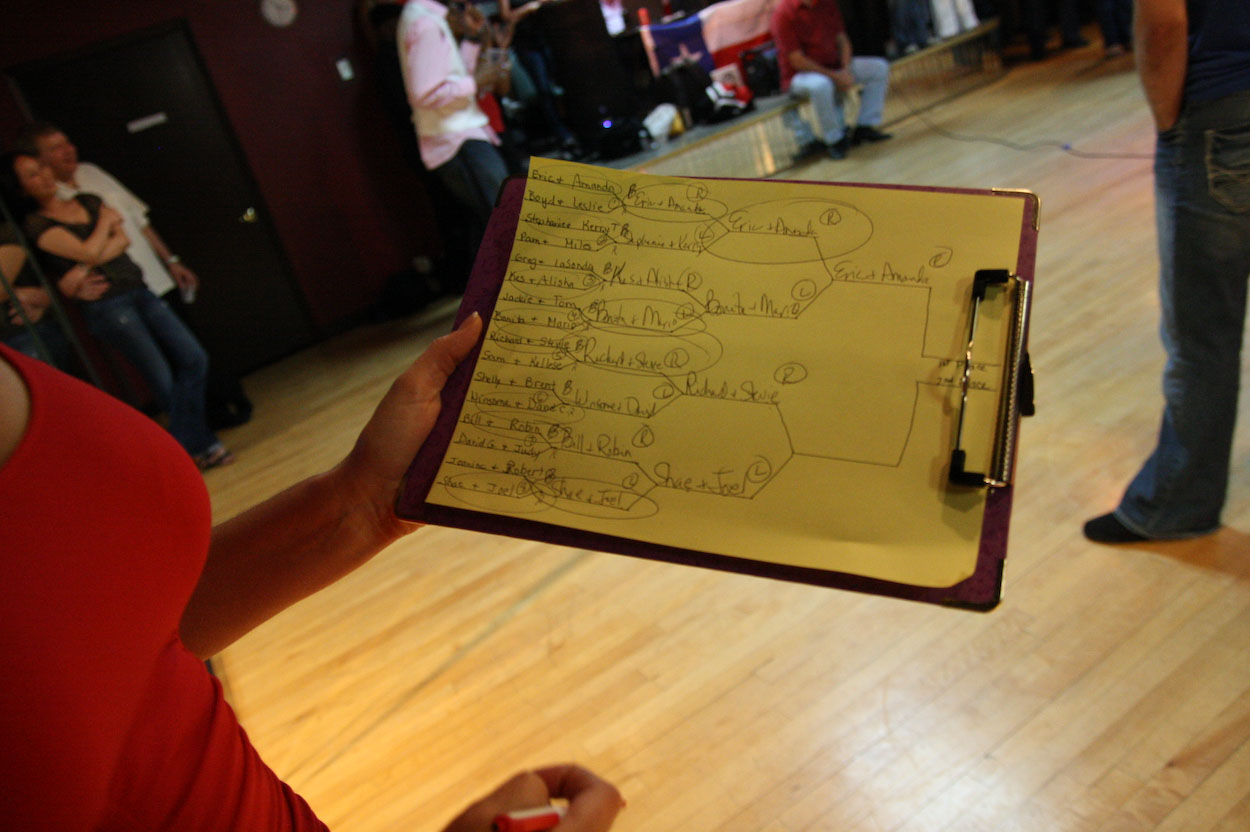 Eric + Amanda
Boyd + Leslie
Stephanie + Kerry T
Pam + Miles
Greg + LaSonda
Kes + Alisha
Jackie + Tom
Bonita + Mario
Richard + Stevie
Sam + Kellese
Shelly + Brent
Winsome + David C.
Bill + Robin
David G + Judy
Jeanina + Robert
Shae + Joel
Eric + Amanda R
Stephanie + Kerry L
Kes + Alisha R
Bonita + Mario
Richard + Stevie R
Winsome + David L
Bill + Robin R
Shae + Joel L
Eric + Amanda R
Bonita + Mario L
Richard + Stevie R
Shae + Joel L
Eric + Amanda R
1st Place
2nd Place